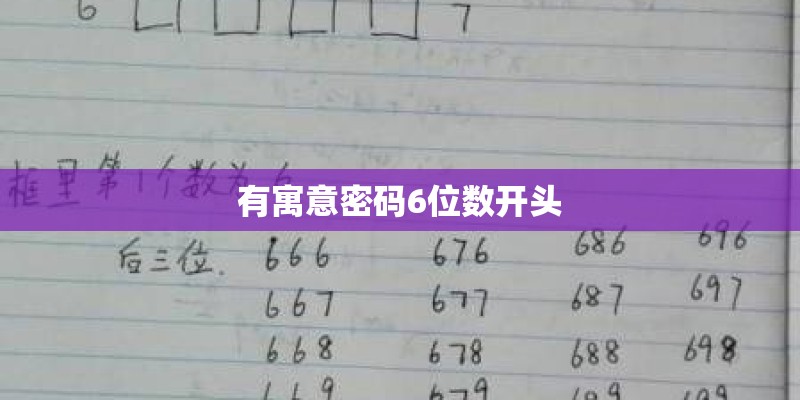 6 □ □ □ □ 7
框里第1个数为6
有寓意密码6位数开头
后三位. 666 676 686 696
667 677 687 697
668 678 688 698
669 679 699